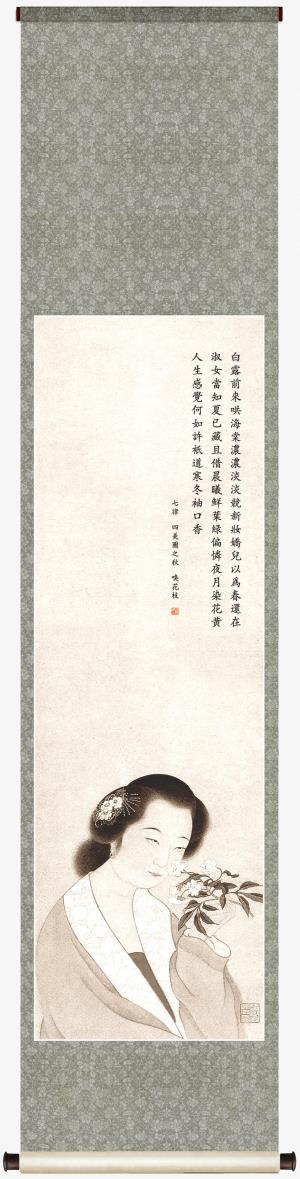 白露前來哄海棠濃濃淡淡競新妝嬌兒以爲春還在
淑女當知夏已藏且借晨曦鮮葉綠偏憐夜月染花黃
人生感覺何如許祇道寒冬袖口香
七律 四美圖之秋 嗅花枝